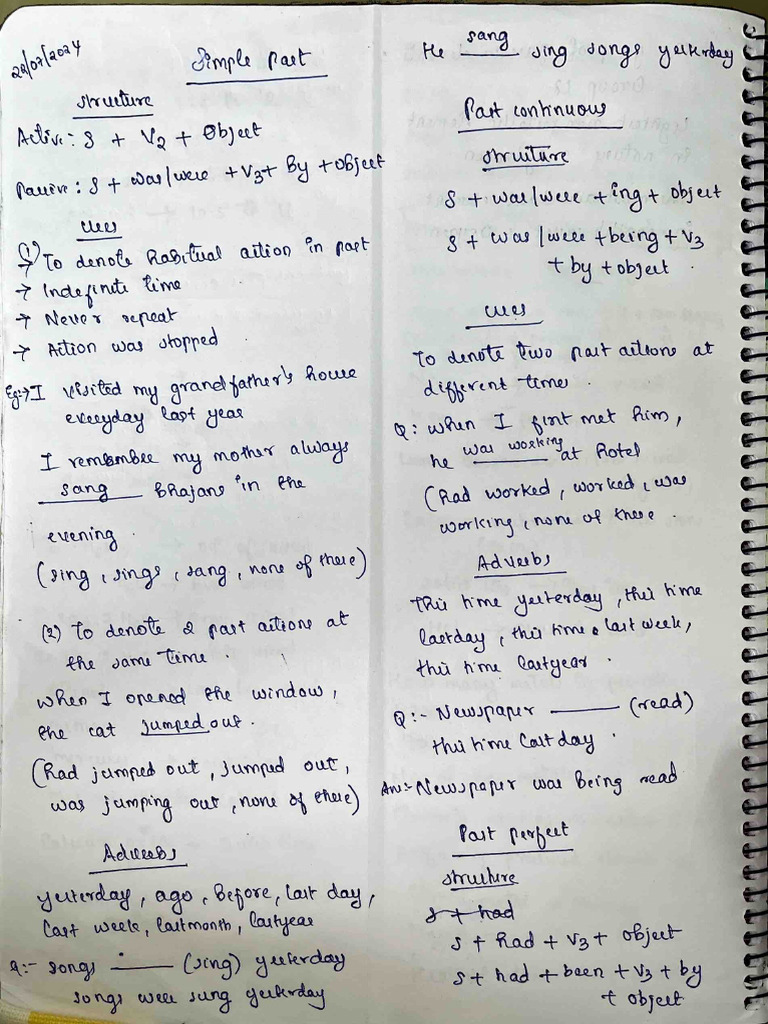 22/07/2024
Simple past
structure
Active: S + V2 + Object
Passive: S + was/were + V3 + By + object
Uses
(1)
→ To denote habitual action in past
→ Indefinite time
→ Never repeat
→ Action was stopped
Eg:→ I visited my grandfather's house
everyday last year
I remember my mother always
sang bhajans in the
evening.
(sing, sings, sang, none of these)
(2) To denote 2 past actions at
the same time.
when I opened the window,
the cat jumped out.
(had jumped out, jumped out,
was jumping out, none of these)
Adverbs
yesterday, ago, Before, last day,
last week, last month, last year
Q:- songs ____ (sing) yesterday
songs were sung yesterday
He sang sing songs yesterday
Past continuous
structure
S + was/were + ing + object
S + was/were + being + V3
+ by + object.
Uses
To denote two past actions at
different time.
Q: when I first met him,
he was working at hotel
(had worked, worked, was
working, none of these.
Adverbs
this time yesterday, this time
last day, this time last week,
this time last year.
Q:- Newspaper ____ (read)
this time last day.
Ans:- Newspaper was being read
Past perfect
structure
S + had
S + had + V3 + object
S + had + been + V3 + by
+ object